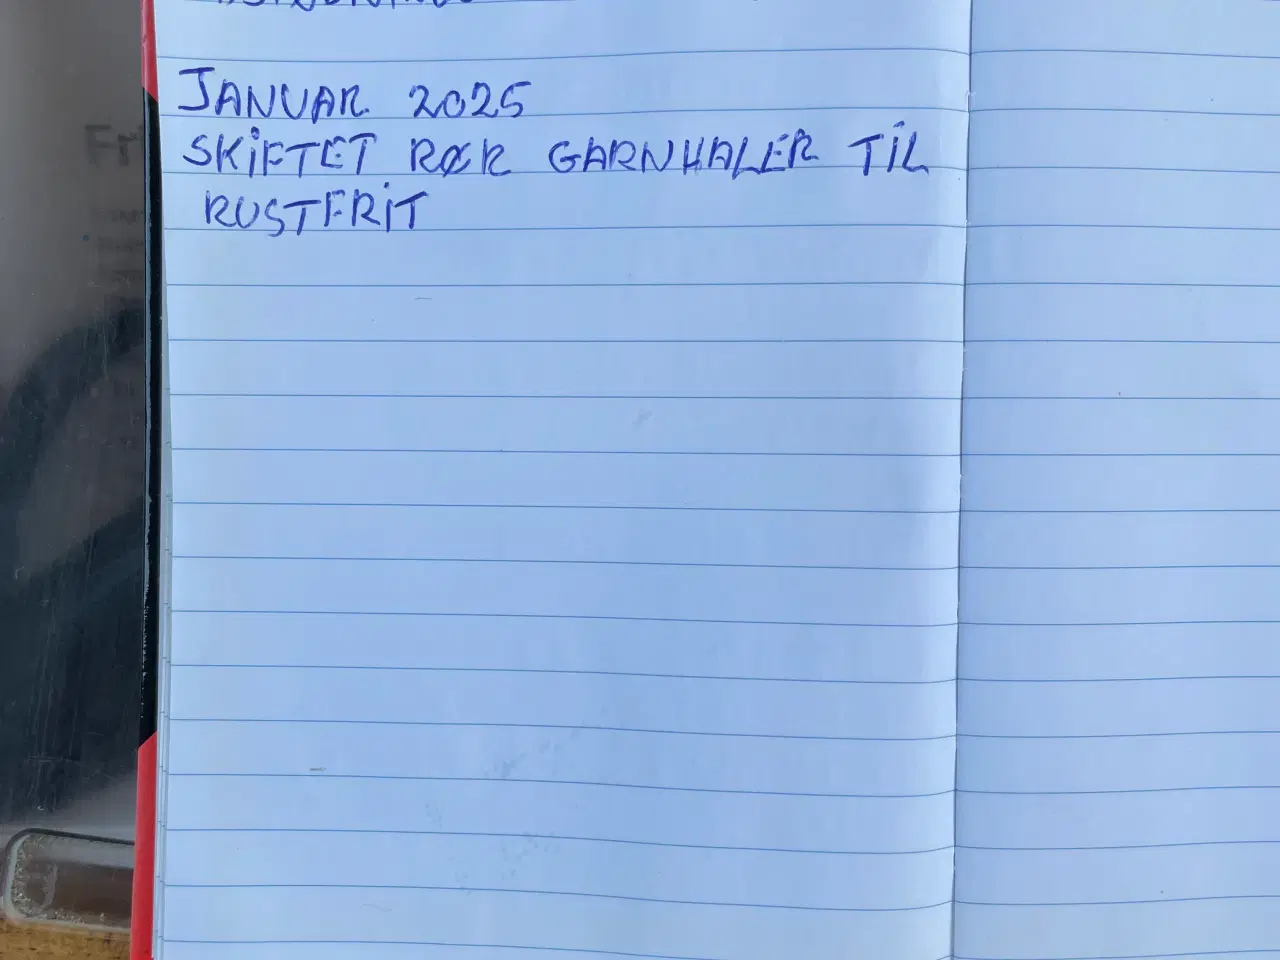 JANUAR 2025
SKIFTET RØR GARNHALER TIL
RUSTFRIT